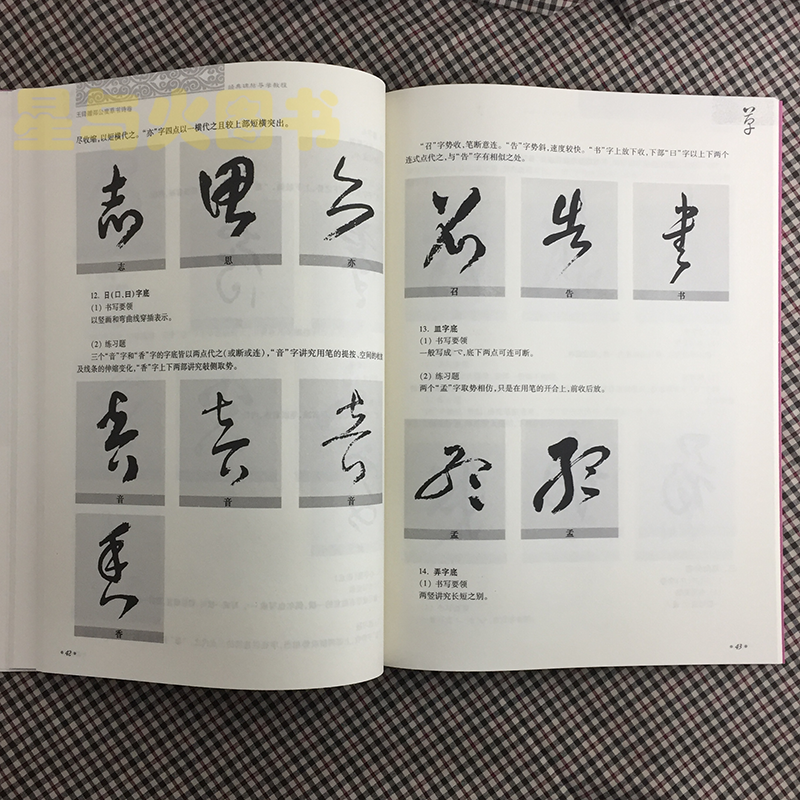 星星火图书
经典碑帖导学教程
尽收缩,以短横代之。“亦”字四点以一横代之且较上部短横突出。
志
思
亦
12. 日(口、曰)字底
(1) 书写要领
以竖画和弯曲线穿插表示。
(2) 练习题
三个“音”字和“香”字的字底皆以两点代之(或断或连),“音”字讲究用笔的提按、空间的收
及线条的伸缩变化,“香”字上下两部讲究敧侧取势。
音
音
音
香
42
草
“召”字势收,笔断意连。“告”字势斜,速度较快。“书”字上放下收,下部“曰”字以上下两个
连式点代之,与“告”字有相似之处。
召
告
书
13. 皿字底
(1) 书写要领
一般写成 ,底下两点可连可断。
(2) 练习题
两个“孟”字取势相仿,只是在用笔的开合上,前收后放。
孟
孟
14. 弄字底
(1) 书写要领
两竖讲究长短之别。
43